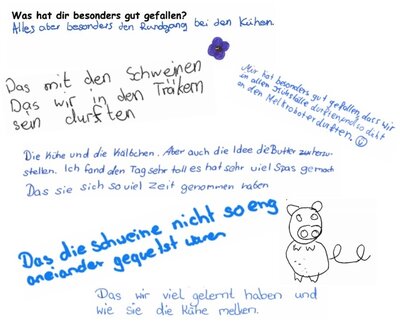 Was hat dir besonders gut gefallen?
Alles aber besonders den Rundgang bei den Kühen.
Das mit den Schweinen
Das wir in den Träkern
sein durften
Mir hat besonders gut gefallen, dass wir
in allen Kuhställe durften und so dicht
an den Melkroboter durften.
Die Kühe und die Kälbchen. Aber auch die Idee die Butter
stellen. Ich fand den Tag sehr toll es hat sehr viel Spas gemach
Das sie sich so viel Zeit genommen haben
Das die schweine nicht so eng
aneiander gequetst waren
Das wir viel gelernt haben und
wie sie die Kühe melken.